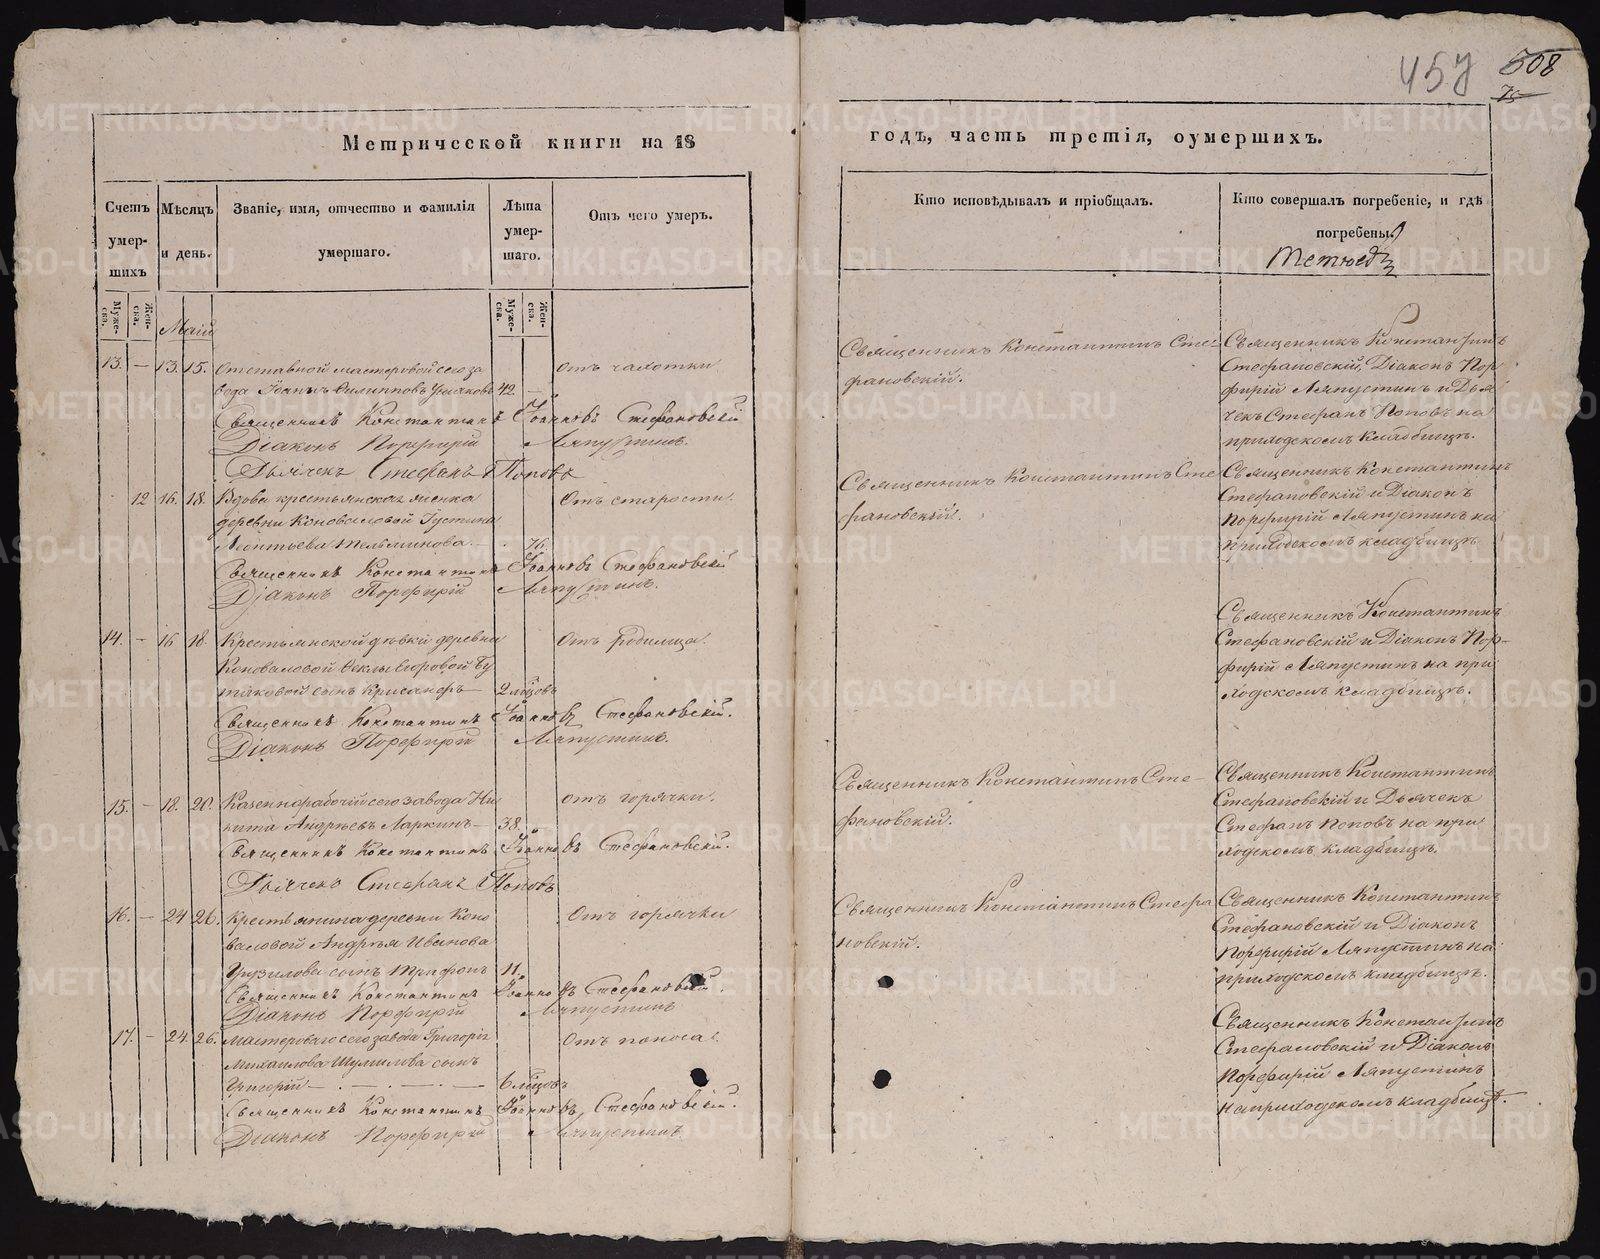 457 508
75
Метрической книги на 18 годъ, часть третія, оумершихъ.
Счетъ умершихъ
Мѣсяцъ и день.
Званіе, имя, отчество и фамилія умершаго.
Лѣта умершаго.
Отъ чего умеръ.
Кто исповѣдывалъ и пріобщалъ.
Кто совершалъ погребеніе, и гдѣ погребены.
Муже-ска. Жен-ска.
Муже-ска. Жен-ска.
Маій
13. — 13. 15. Отставной мастеровой сего за
вода Іоаннъ Филипповъ 42. —
Отъ чахотки
Священникъ Константинъ Сте-
фановскій.
Священникъ Константинъ
Стефановскій, Діаконъ Пор-
фирій Ляпустинъ и Дья-
чекъ Стефанъ Поповъ на
приходскомъ кладбищѣ.
Священникъ Константинъ Іоанновъ Стефановскій
Діаконъ Порфирій Ляпустинъ.
Дьячекъ Стефанъ Поповъ
12 16. 18. Вдова крестьянская женка
деревни Коноваловой Іустина
Леонтьева 76.
Отъ старости.
Священникъ Константинъ Сте
фановскій.
Священникъ Константинъ
Стефановскій и Діаконъ
Порфирій Ляпустинъ на
приходскомъ кладбищѣ
Священникъ Константинъ Іоанновъ Стефановскій
Діаконъ Порфирій Ляпустинъ.
14. — 16 18. Крестьянской дѣвки деревни
Коноваловой Феклы Бу
таковой сынъ 2 мцовъ
Отъ родимца.
Священникъ Константинъ
Стефановскій и Діаконъ Пор-
фирій Ляпустинъ на при
ходскомъ кладбищѣ.
Священникъ Константинъ Іоанновъ Стефановскій.
Діаконъ Порфирій Ляпустинъ.
15. — 18. 20. Казеннорабочій сего завода Ни
кита Андреевъ Ларкинъ — 38.
Отъ горячки.
Священникъ Константинъ Сте-
фановскій.
Священникъ Константинъ
Стефановскій и Дьячекъ
Стефанъ Поповъ на при
ходскомъ кладбищѣ.
Священникъ Константинъ Іоанновъ Стефановскій.
Дьячекъ Стефанъ Поповъ
16. — 24 26. Крестьянина деревни Коно
валовой Андрея Иванова
сынъ Трифонъ 11.
Отъ горячки
Священникъ Константинъ Стефа
новскій.
Священникъ Константинъ
Стефановскій и Діаконъ
Порфирій Ляпустинъ на
приходскомъ кладбищѣ.
Священникъ Константинъ Іоанновъ Стефановскій.
Діаконъ Порфирій Ляпустинъ
17. — 24. 26. Мастероваго сего завода Григорія
Михайлова Шумилова сынъ
Григорій — 6 мцовъ
Отъ поноса.
Священникъ Константинъ
Стефановскій и Діаконъ
Порфирій Ляпустинъ
на приходскомъ кладбищѣ.
Священникъ Константинъ Іоанновъ Стефановскій.
Діаконъ Порфирій Ляпустинъ.
METRIKI.GASO-URAL.RU